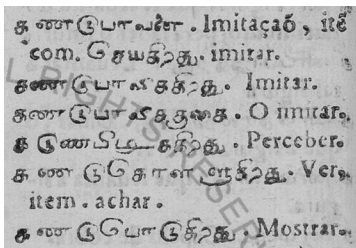 கணடுபாவனை. Imitaçaõ, itẽ
com. செயகிறது. imitar.
கணடுபாவிககிறது. Imitar.
கணடுபாவிககுகை. O imitar.
கணடுபிடிககிறது. Perceber.
கணடுகொளளுகிறது. Ver,
item. achar.
கணடுபொடுகிறது. Mostrar.